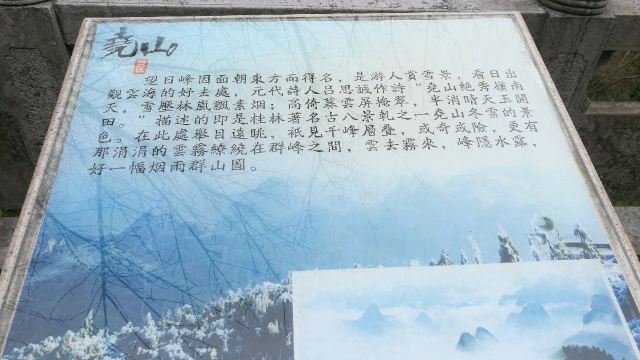 堯山
景区
望日峰因面朝東方而得名，是游人賞雪景，看日出
觀雲海的好去處，元代詩人吕思誠作詩“堯山絶秀嶺南
天，雪壓林嵐飄素烟；高倚暮雲屏掩翠，半消晴天玉開
田。”描述的即是桂林著名古八景軋之一堯山冬雪的景
色。在此處舉目遠眺，衹見千峰層叠，或奇或險，更有
那涓涓的雲霧繚繞在群峰之間，雲去霧來，峰隱水露，
好一幅烟雨群山圖。